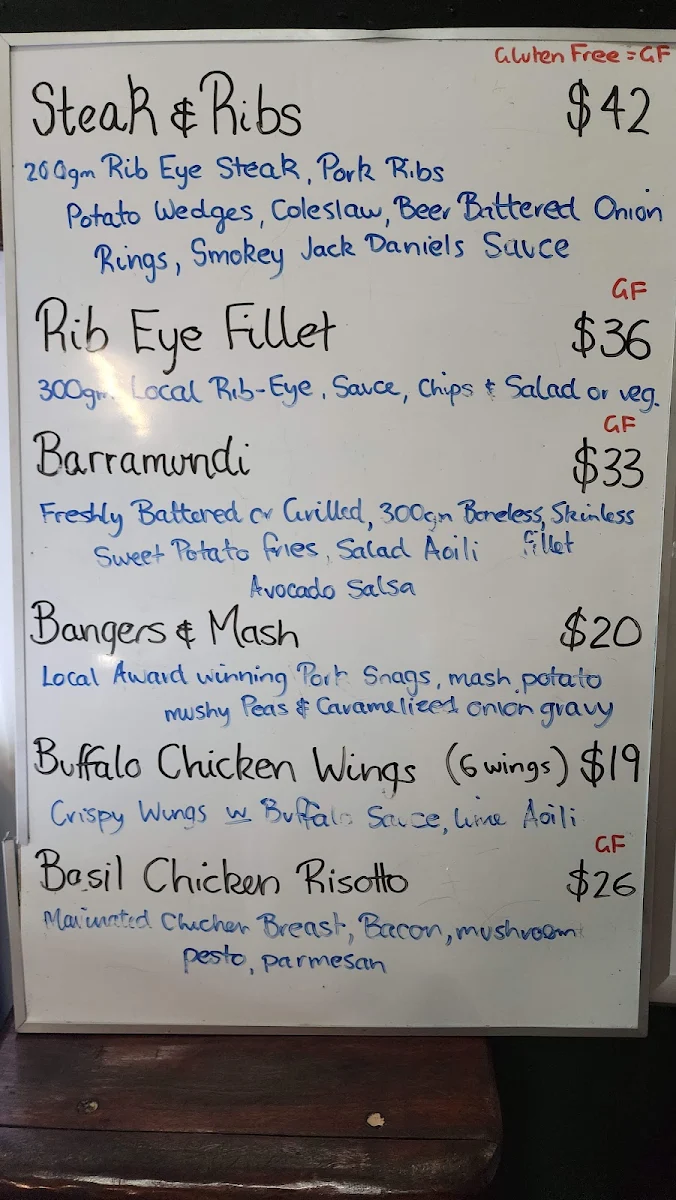 Gluten Free = GF
Steak & Ribs $42
200gm Rib Eye Steak, Pork Ribs
Potato Wedges, Coleslaw, Beer Battered Onion
Rings, Smokey Jack Daniels Sauce
GF
Rib Eye Fillet $36
300gm Local Rib-Eye, Sauce, Chips & Salad or veg.
GF
Barramundi $33
Freshly Battered or Grilled, 300gm Boneless, Skinless
Sweet Potato fries, Salad Aoili fillet
Avocado Salsa
Bangers & Mash $20
Local Award winning Pork Snags, mash potato
mushy Peas & Caramelized onion gravy
Buffalo Chicken Wings (6 wings) $19
Crispy Wings w Buffalo Sauce, lime Aoili
GF
Basil Chicken Risotto $26
Marinated Chicken Breast, Bacon, mushroom
pesto, parmesan